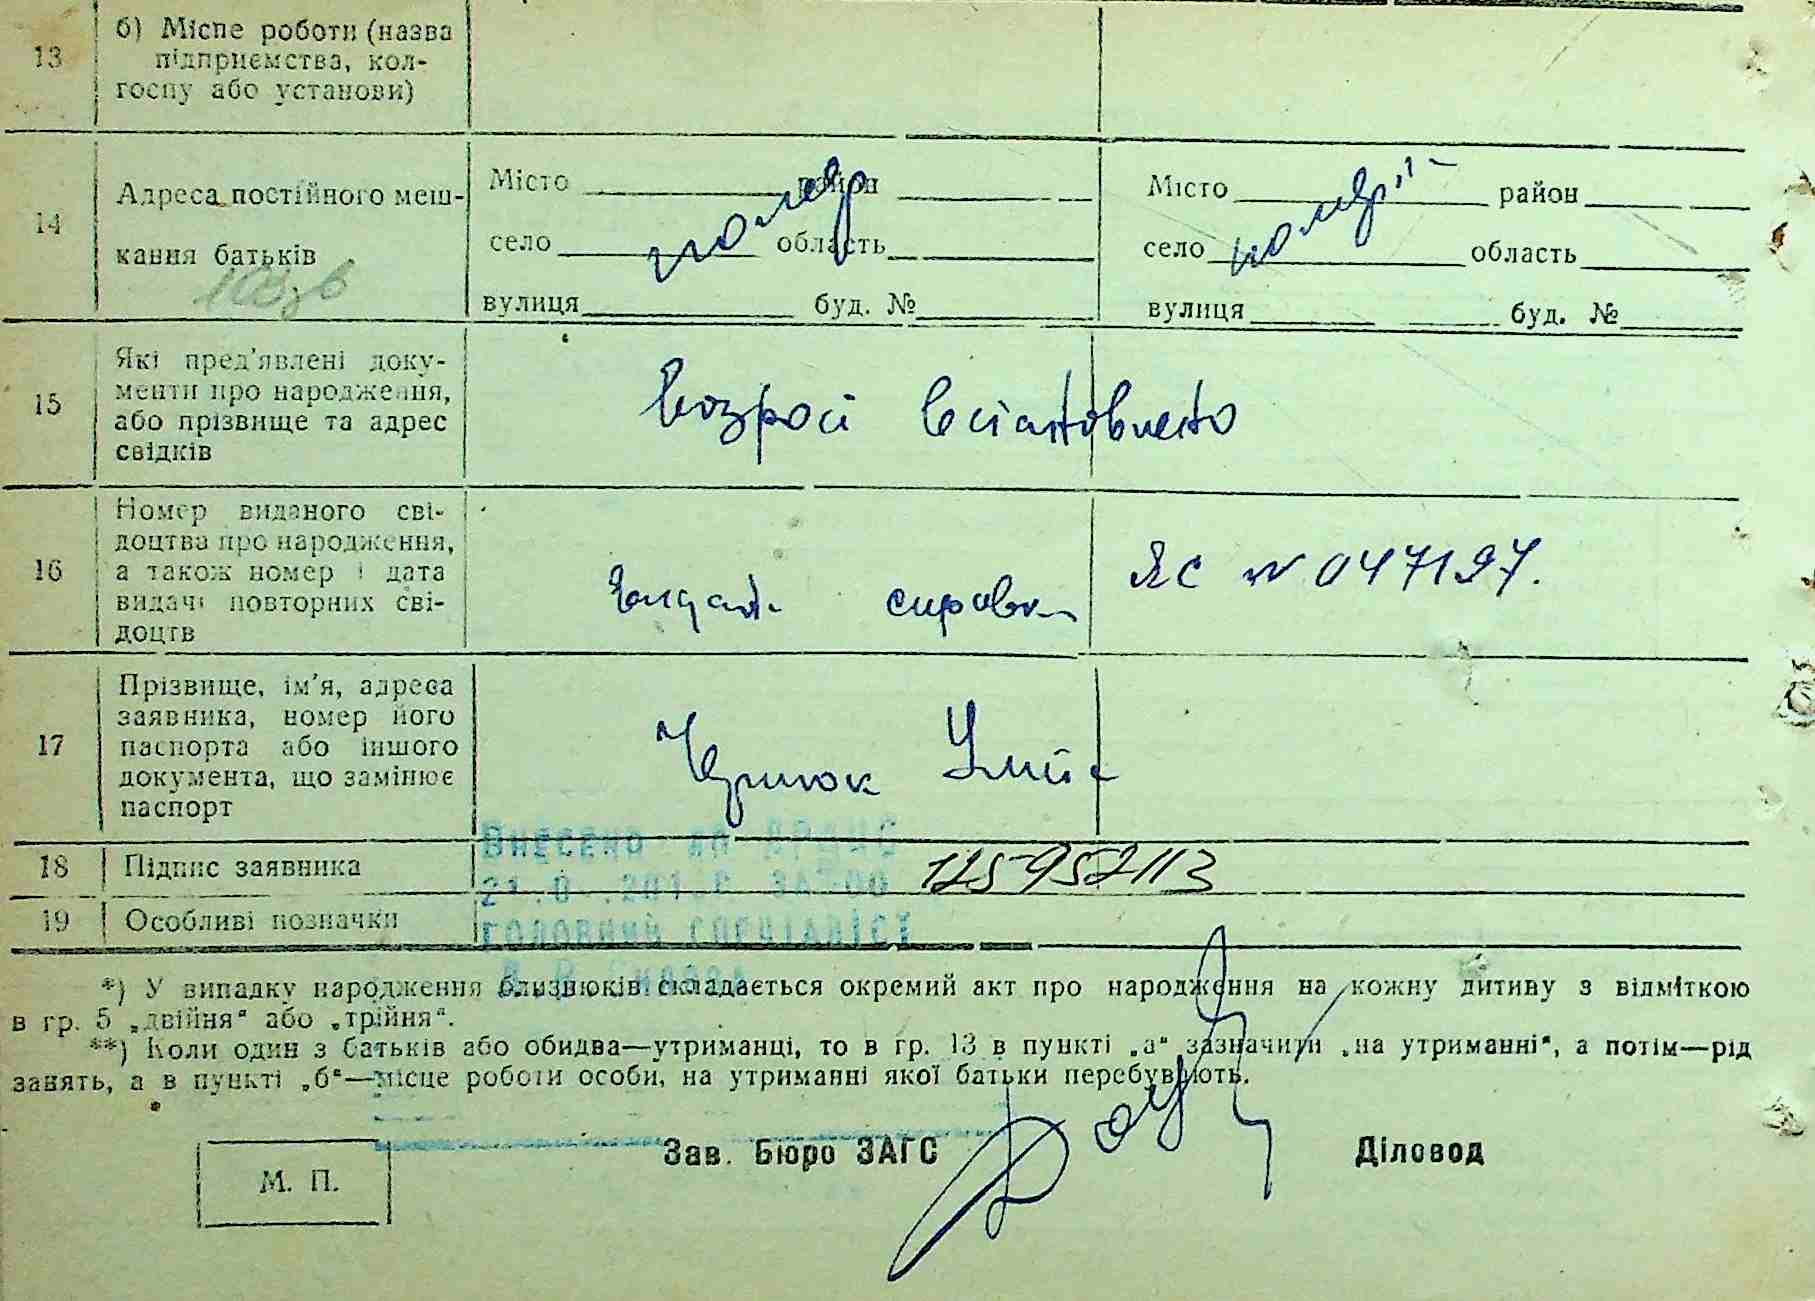 13
б) Місце роботи (назва
підприємства, кол-
госпу або установи)
14
Адреса постійного меш-
кання батьків
Місто район
село область
вулиця буд. №
помер
Місто район
село область
вулиця буд. №
померл
15
Які пред'явлені доку-
менти про народження,
або прізвище та адрес
свідків
возрост встановлено
16
Номер виданого сві-
доцтва про народження,
а також номер і дата
видачі повторних сві-
доцтв
справка
ЯС № 047197.
17
Прізвище, ім'я, адреса
заявника, номер його
паспорта або іншого
документа, що замінює
паспорт
18
Підпис заявника
125952113
19
Особливі позначки
Внесено до ДРАЦС
головний спеціаліст
*) У випадку народження близнюків складається окремий акт про народження на кожну дитину з відміткою
в гр. 5 „двійня“ або „трійня“.
**) Коли один з батьків або обидва—утриманці, то в гр. 13 в пункті „а“ зазначити „на утриманні“, а потім—рід
занять, а в пункті „б“—місце роботи особи, на утриманні якої батьки перебувають.
М. П.
Зав. Бюро ЗАГС
Діловод